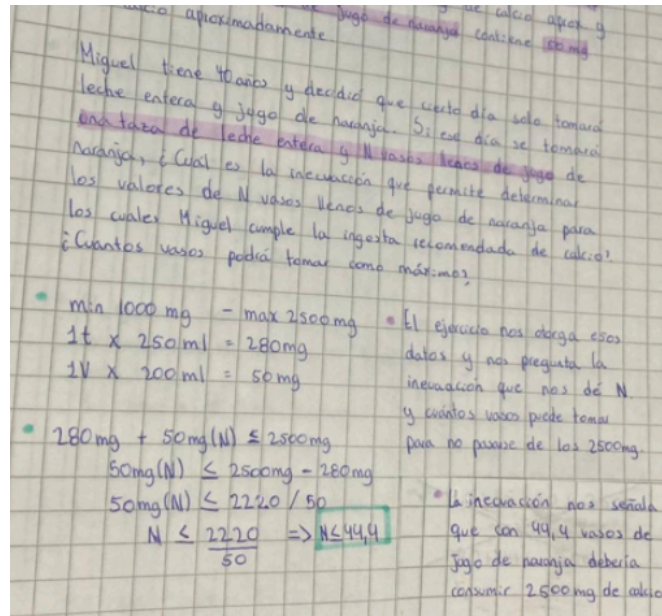 de calcio aprox y
jugo de naranja contiene 50 mg
aproximadamente
Miguel tiene 40 años y decidió que cierto día solo tomará
leche entera y jugo de naranja. Si ese día se tomará
una taza de leche entera y N vasos llenos de jugo de
naranja, ¿Cuál es la inecuación que permite determinar
los valores de N vasos llenos de jugo de naranja para
los cuales Miguel cumple la ingesta recomendada de calcio?
¿Cuantos vasos podrá tomar como máximo?
min 1000 mg - max 2500 mg
1t x 250 ml = 280mg
1V x 200 ml = 50 mg
• El ejercicio nos otorga esos
datos y nos pregunta la
inecuación que nos dé N.
y cuántos vasos puede tomar
para no pasarse de los 2500mg.
280mg + 50mg(N) ≤ 2500mg
50mg(N) ≤ 2500mg - 280mg
50mg(N) ≤ 2220 / 50
N ≤ 2220/50 => N≤44,4
• La inecuación nos señala
que con 44,4 vasos de
Jugo de naranja debería
consumir 2500 mg de calcio